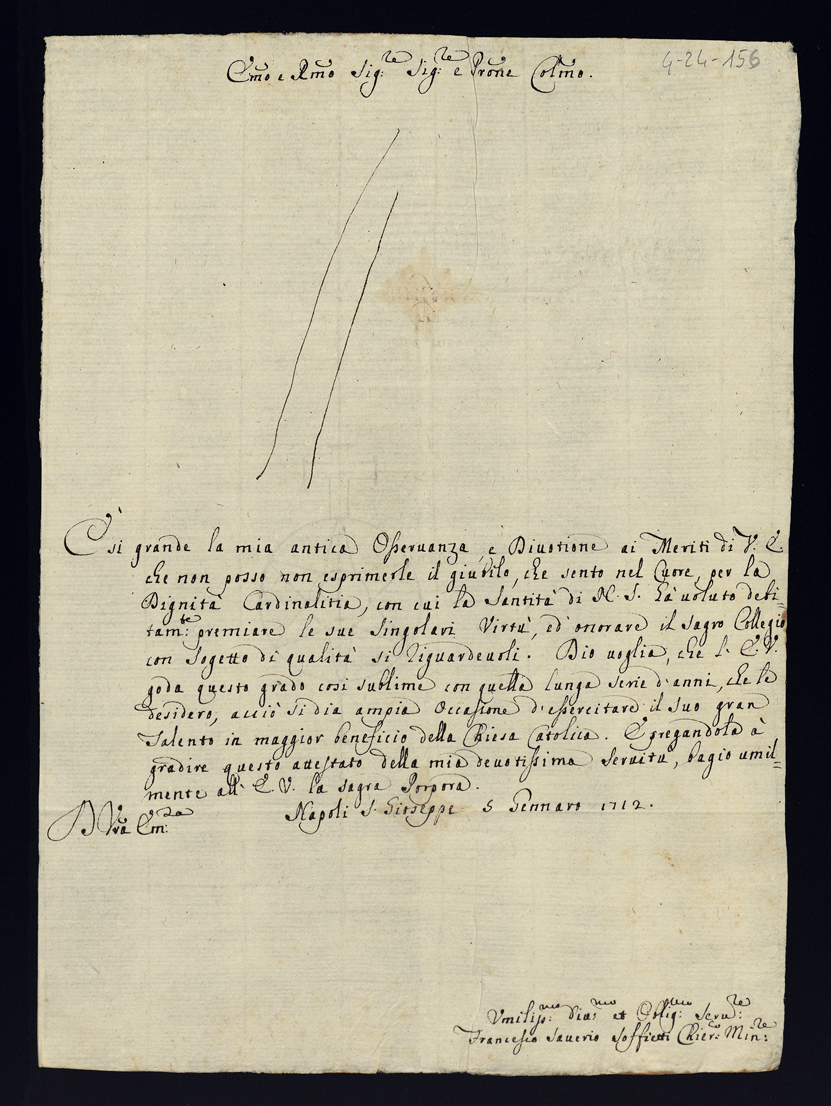 Emo e Rmo Sig.re Sig.re e Prone Colmo.
4-24-156
E' si grande la mia antica Osseruanza, e Diuotione ai Meriti di V. E.
che non posso non esprimerle il giubilo, che sento nel Cuore, per la
Dignità Cardinalitia, con cui la Santità di N. S. hà uoluto debi-
tam.te premiare le sue singolari Virtù, ed' onorare il sagro Collegio
con sogetto di qualità si riguardeuoli. Dio uoglia, che l' E. V.
goda questo grado cosi sublime con quella lunga serie d'anni, che le
desidero, acciò si dia ampia Occasione d'essercitare il suo gran
Talento in maggior beneficio della Chiesa Catolica. E pregandola à
gradire questo attestato della mia deuotissima seruitù, bagio umil=
mente all' E. V. la sagra Porpora.
Napoli S. Gioseppe 5 Gennaro 1712.
D Vra Em.za
Vmiliss.mo Diu.mo et Oblig.mo Seru.re
Francesco Sauerio Soffietti Chier.co Min.re